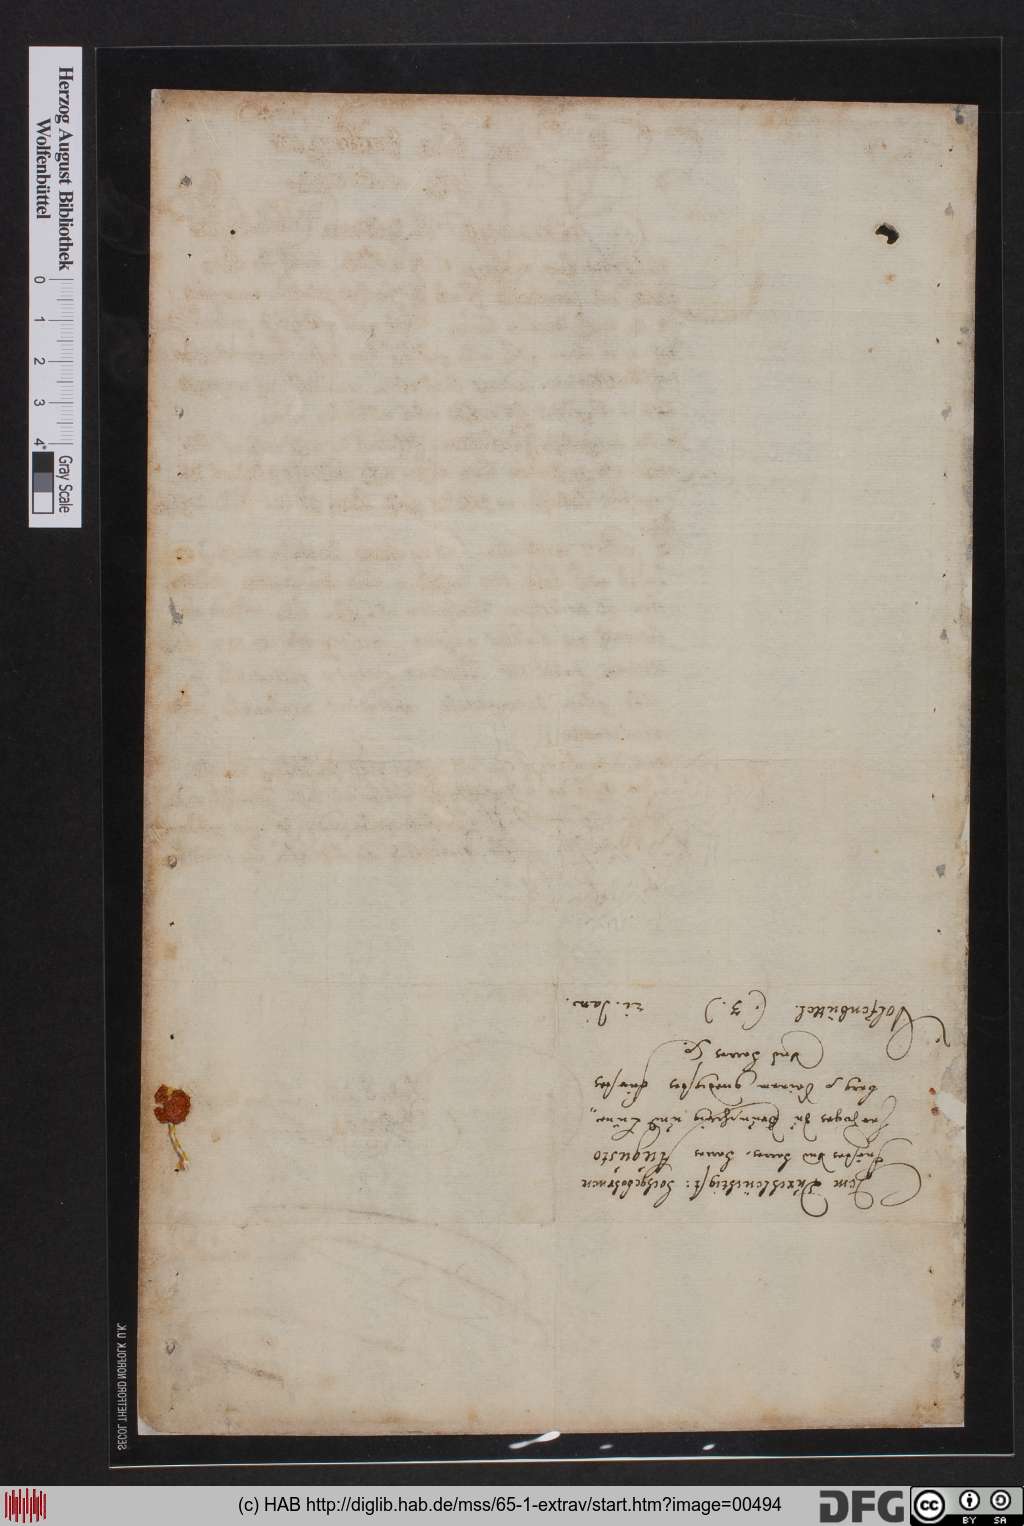 Herzog August Bibliothek
Wolfenbüttel
0 1 2 3 4"
Gray Scale
Dem Durchleuchtigst: Hochgebohrnen
Fürsten vnd Herrn, Herrn Augusto
Hertzogen zu Braunschweig und Lüne„
burg p. Meinem gnedigsten Fürsten
Vnd Herrn
Wolfenbüttel. (.3.) 21. Jan.
SECOL THETFORD NORFOLK U.K.
(c) HAB http://diglib.hab.de/mss/65-1-extrav/start.htm?image=00494
DFG
cc BY SA